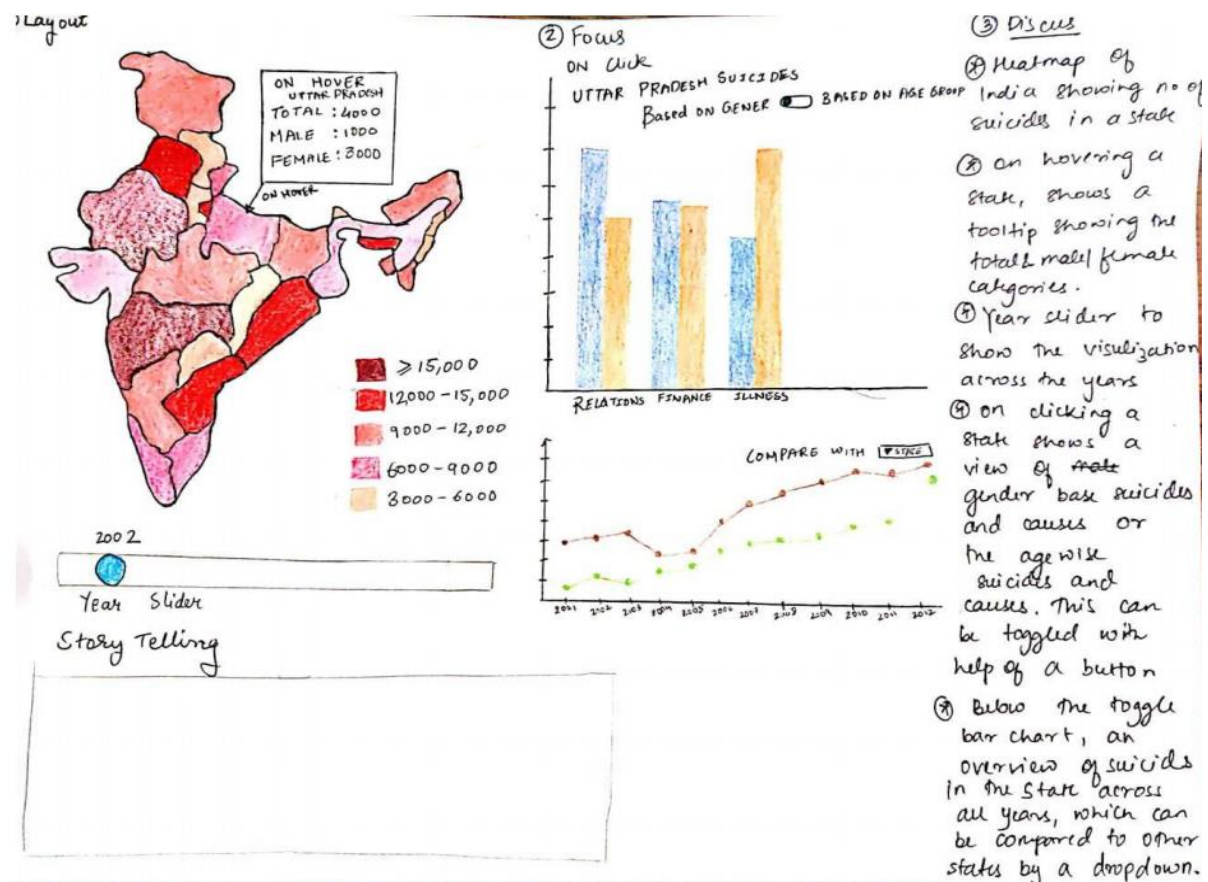 Layout
ON HOVER
UTTAR PRADESH
TOTAL : 4000
MALE : 1000
FEMALE : 3000
ON HOVER
≥ 15,000
12000 - 15,000
9000 - 12,000
6000 - 9000
3000 - 6000
2002
Year Slider
Story Telling
② Focus
ON Click
UTTAR PRADESH SUICIDES
Based on GENER BASED ON AGE GROUP
RELATIONS FINANCE ILLNESS
COMPARE WITH ▼STATE
2001 2002 2003 2004 2005 2006 2007 2008 2009 2010 2011 2012
③ Discus
* Heatmap of
India showing no of
suicides in a state
* on hovering a
state, shows a
tooltip showing the
total & male/female
categories.
* Year slider to
show the visulization
across the years
* on clicking a
state shows a
view of male
gender base suicides
and causes or
the agewise
suicides and
causes. This can
be toggled with
help of a button
* Below the toggle
bar chart, an
overview of suicids
in the State across
all years, which can
be compared to other
states by a dropdown.